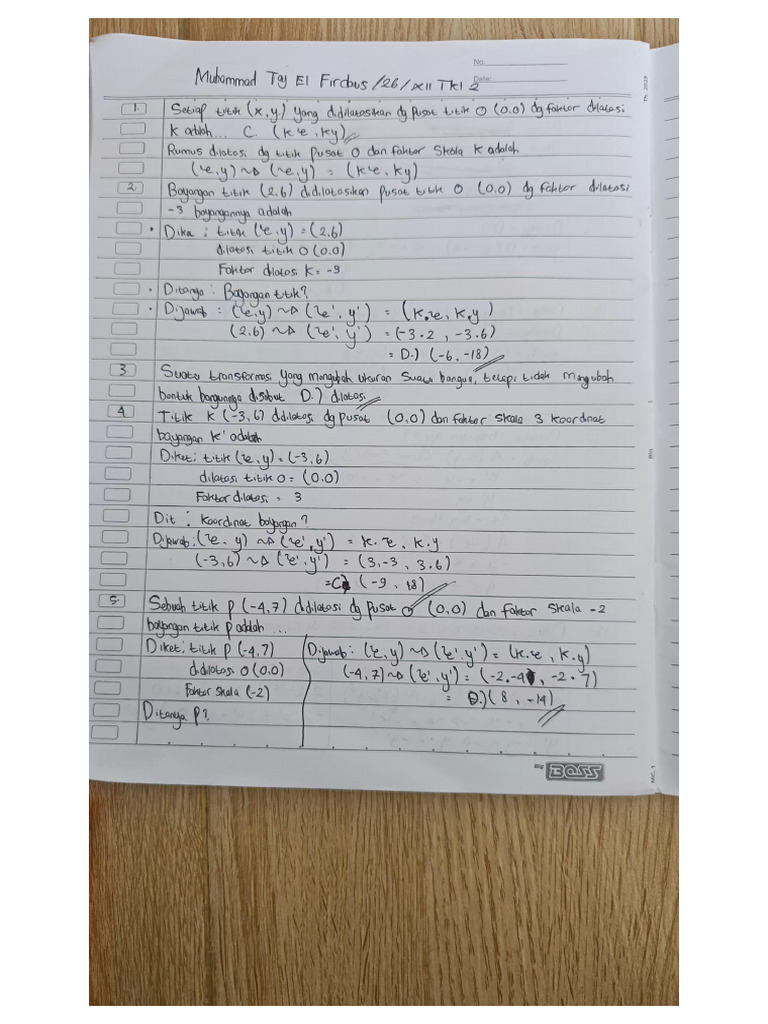 No.
Date:
Muhammad Taj El Firdaus /26/ XII TKI 2
1. Setiap titik (x, y) yang didilatasikan dg pusat titik O (0.0) dg faktor dilatasi
K adalah... C (kx, ky)
Rumus dilatasi dg titik pusat O dan faktor skala K adalah
(x, y) ~> (x, y) = (kx, ky)
2. Bayangan titik (2.6) didilatasikan pusat titik O (0.0) dg faktor dilatasi
-3 bayangannya adalah
• Dika : titik (x, y) = (2.6)
dilatasi titik O (0.0)
Faktor dilatasi K = -3
• Ditanya : Bayangan titik?
• Dijawab : (x, y) ~> (x', y') = (k.x, k.y)
(2.6) ~> (x', y') = (-3.2, -3.6)
= D.) (-6, -18)
3. Suatu transformasi yang mengubah ukuran suatu bangun, tetapi tidak mengubah
bentuk bangunnya disebut D.) dilatasi
4. Titik K (-3, 6) didilatasi dg pusat (0.0) dan faktor skala 3 koordinat
bayangan K' adalah
Diket : titik (x, y) = (-3, 6)
dilatasi titik O = (0.0)
Faktor dilatasi = 3
Dit : Koordinat bayangan?
Dijawab : (x, y) ~> (x', y') = k.x, k.y
(-3, 6) ~> (x', y') = (3.-3, 3.6)
= C) (-9, 18)
5. Sebuah titik P (-4, 7) didilatasi dg pusat O (0.0) dan faktor skala -2
bayangan titik P adalah ...
Diket : titik P (-4, 7)
didilatasi O (0.0)
Faktor skala (-2)
Ditanya P?
Dijawab : (x, y) ~> (x', y') = (k.x, k.y)
(-4, 7) ~> (x', y') = (-2.-4, -2.7)
= D.) (8, -14)
BOSS
MC. 1